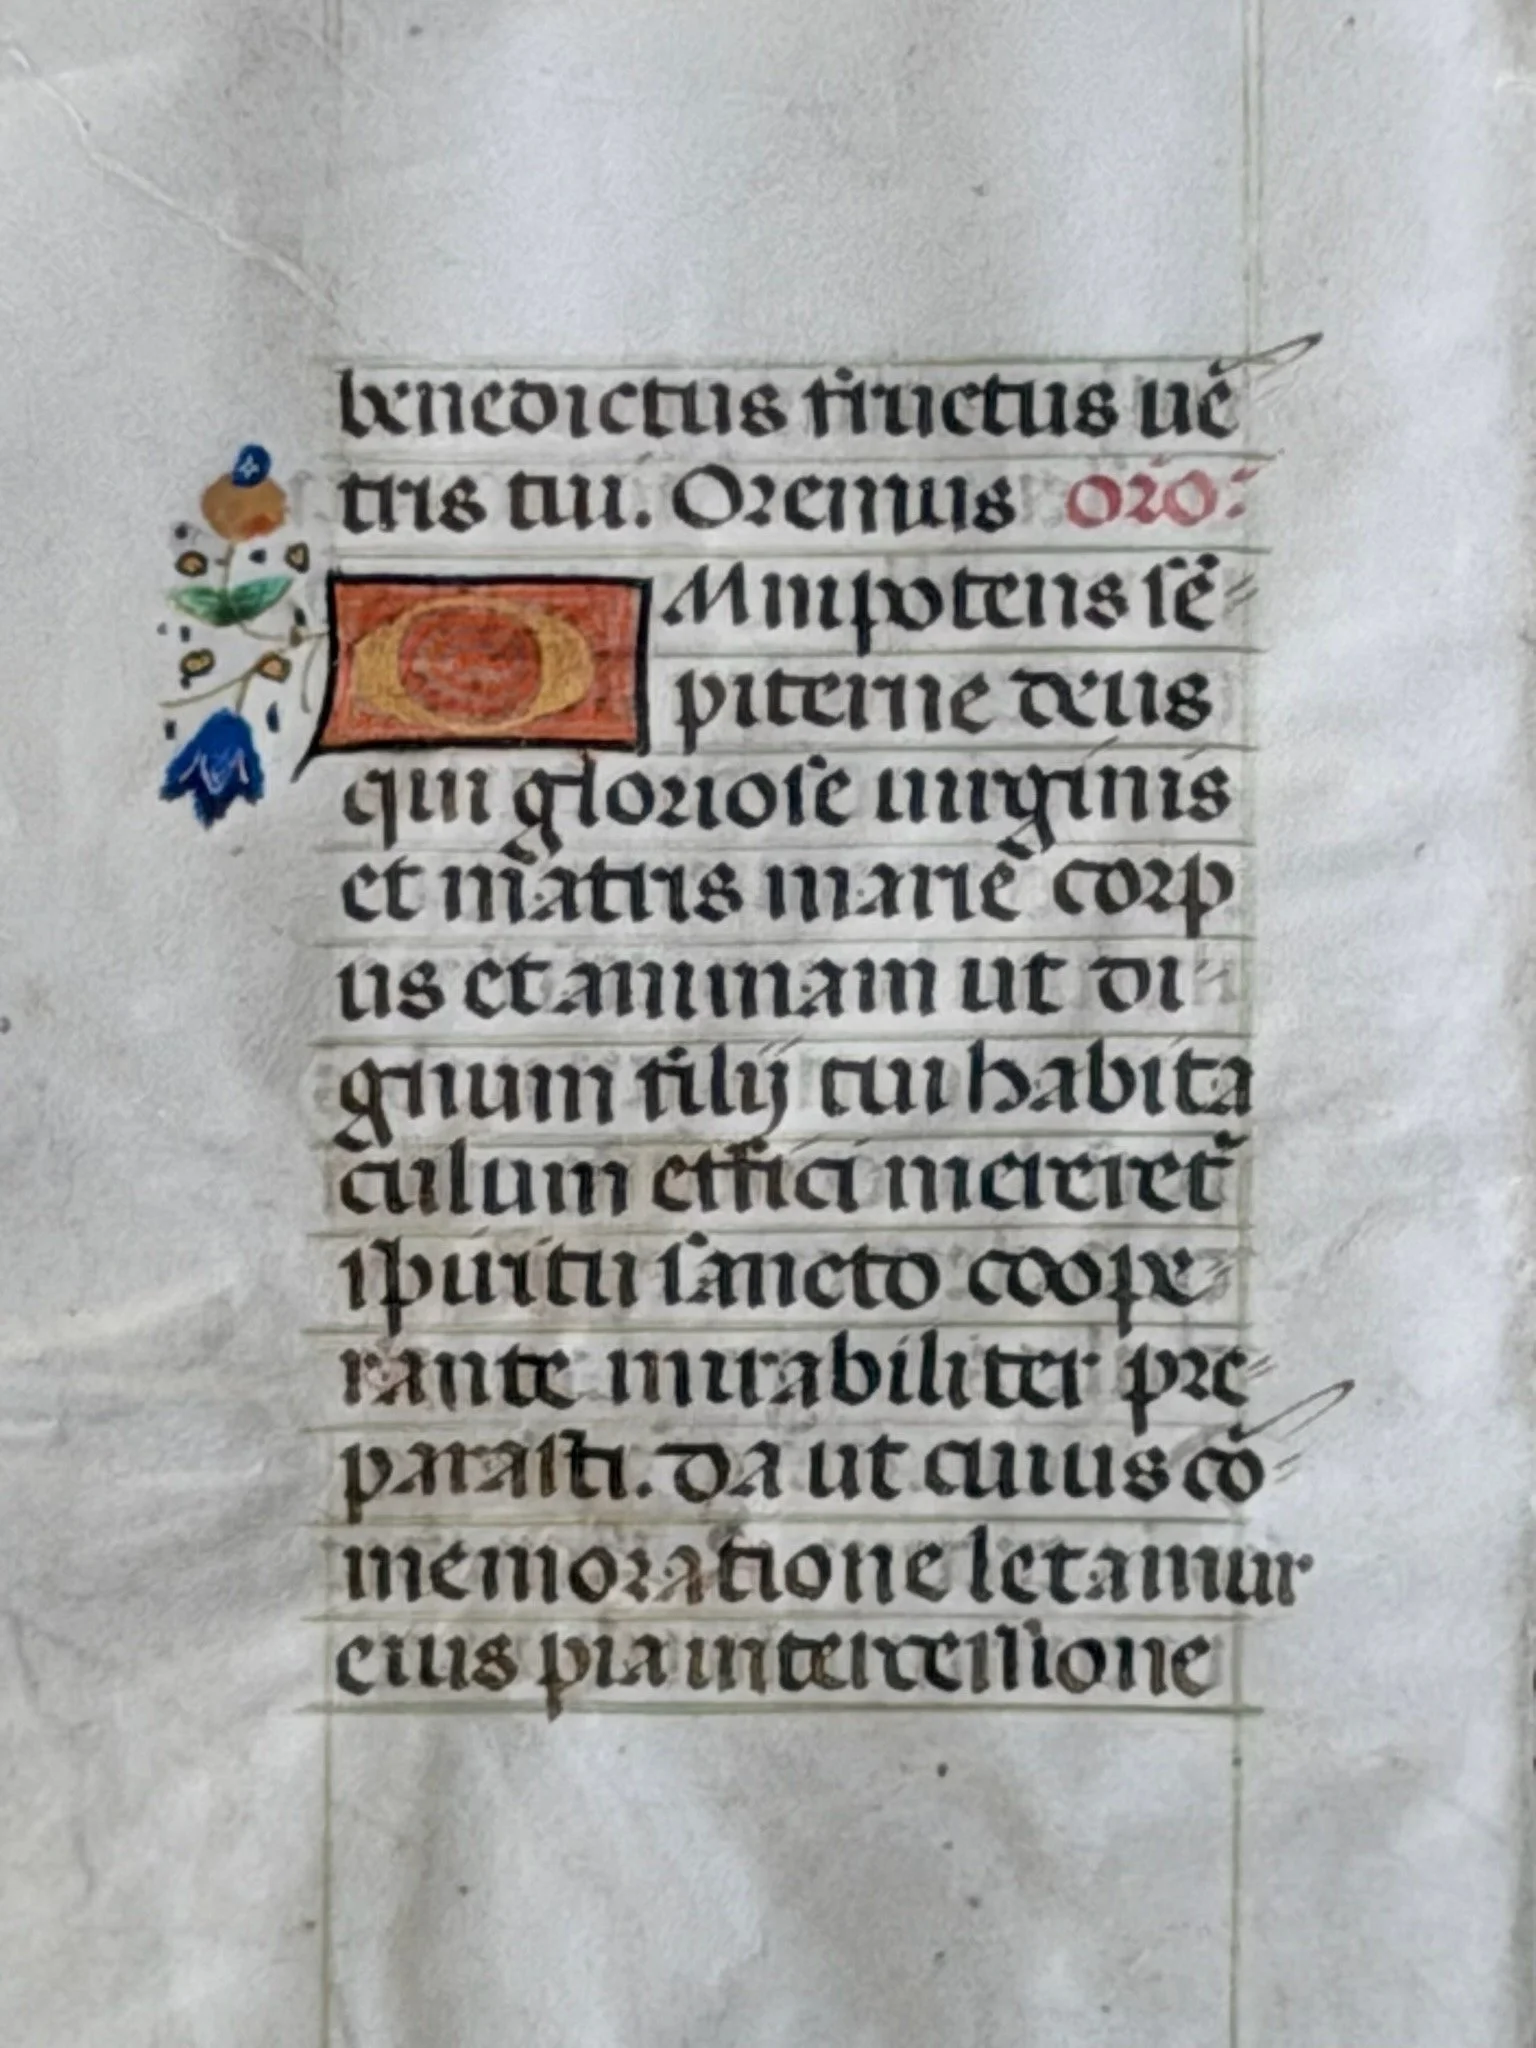 benedictus fructus uē
tris tui. Oremus oro:
OMnipotens sē
piterne deus
qui gloriose uirginis
et matris marie corp
us et animam ut di
gnum filij tui habita
culum effici mereret᷑
spiritu sancto coope
rante mirabiliter pre
parasti. da ut cuius cō
memoratione letamur
eius pia intercessione